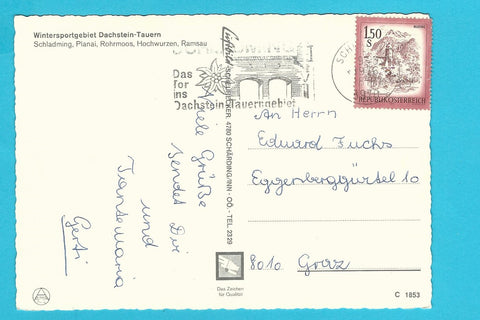 Wintersportgebiet Dachstein-Tauern
Schladming, Planai, Rohrmoos, Hochwurzen, Ramsau
SCHLADMING
Das
for
ins
Dachstein-Tauerngebiet
1.50
S
REPUBLIK ÖSTERREICH
4780 SCHÄRDING/INN - OÖ. - TEL. 2329
Viele Grüße
sendet Dir
und
Tante Maria
Gerti
An Herrn
Eduard Fuchs
Eggenberggürtel 10
8010 Graz
Das Zeichen
für Qualität
C 1853